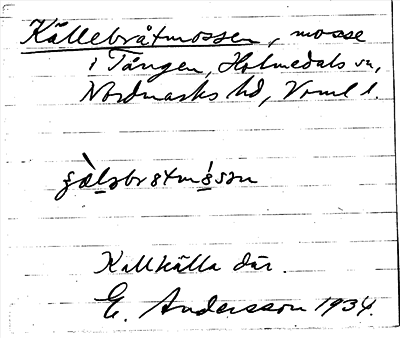 Källebråtmossen, mosse
i Tången, Holmedals sn,
Nordmarks hd, Vrml l.
Kallkälla där.
E. Andersson 1934.